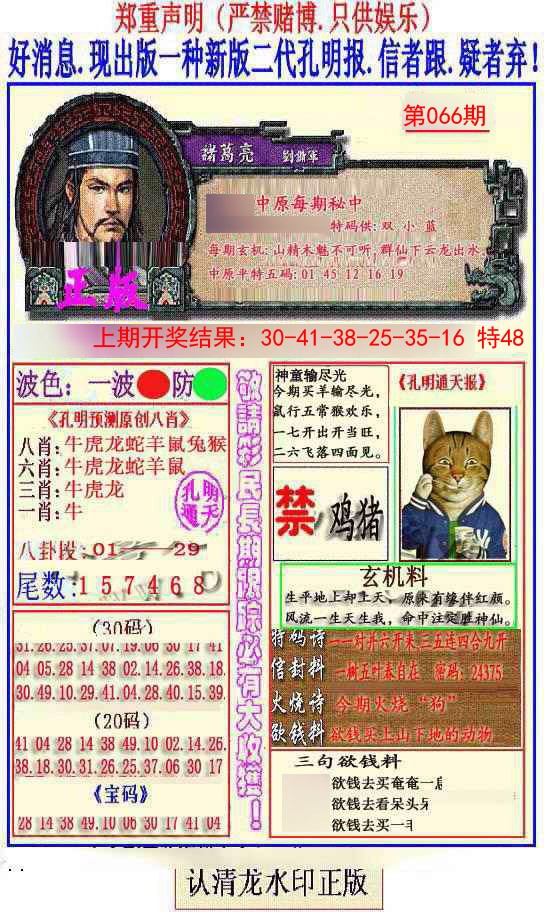 郑重声明（严禁赌博.只供娱乐）
好消息.现出版一种新版二代孔明报.信者跟.疑者弃！
第066期
諸葛亮
中原每期秘中
特码供: 双 小 蓝
每期玄机: 山精木魅不可听, 群仙下云龙出水
中原平特五码: 01 45 12 16 19
正版
上期开奖结果：30-41-38-25-35-16 特48
波色：一波 防
《孔明预测原创八肖》
八肖: 牛虎龙蛇羊鼠兔猴
六肖: 牛虎龙蛇羊鼠
三肖: 牛虎龙
一肖: 牛
孔明
通天
八卦段: 01 29
尾数: 1 5 7 4 6 8
(30码)
31.26.25.37.07.19.06 30 17 41
04 05.28 14 38 02.14.26.38.18.
30.49.10.29 41.04 28.40 15.39.
(20码)
41 04 28 14 38 49.10 02.14.26.
38.18.30.31.26.25 37.06 30 17
《宝码》
28 14 38 49.10 06 30 17 41 04
敬請彩民長期跟踪必有大收獲！
神童输尽光
今期买羊输尽光,
鼠行五常猴欢乐,
一七开出开当旺,
二六飞落四面见。
禁 鸡猪
《孔明通天报》
玄机料
生平地上却上天、原来有缘伴红颜。
风流一生天生我，命中注定胜神仙。
特码诗 一一对并六开来 三五连四合九开
信封料 一树五叶春自在 密码: 24375
火烧诗 今期火烧“狗”
欲钱料 欲钱买上山下地的动物
三句欲钱料
欲钱去买奄奄一
欲钱去看呆头
欲钱去买一
认清龙水印正版